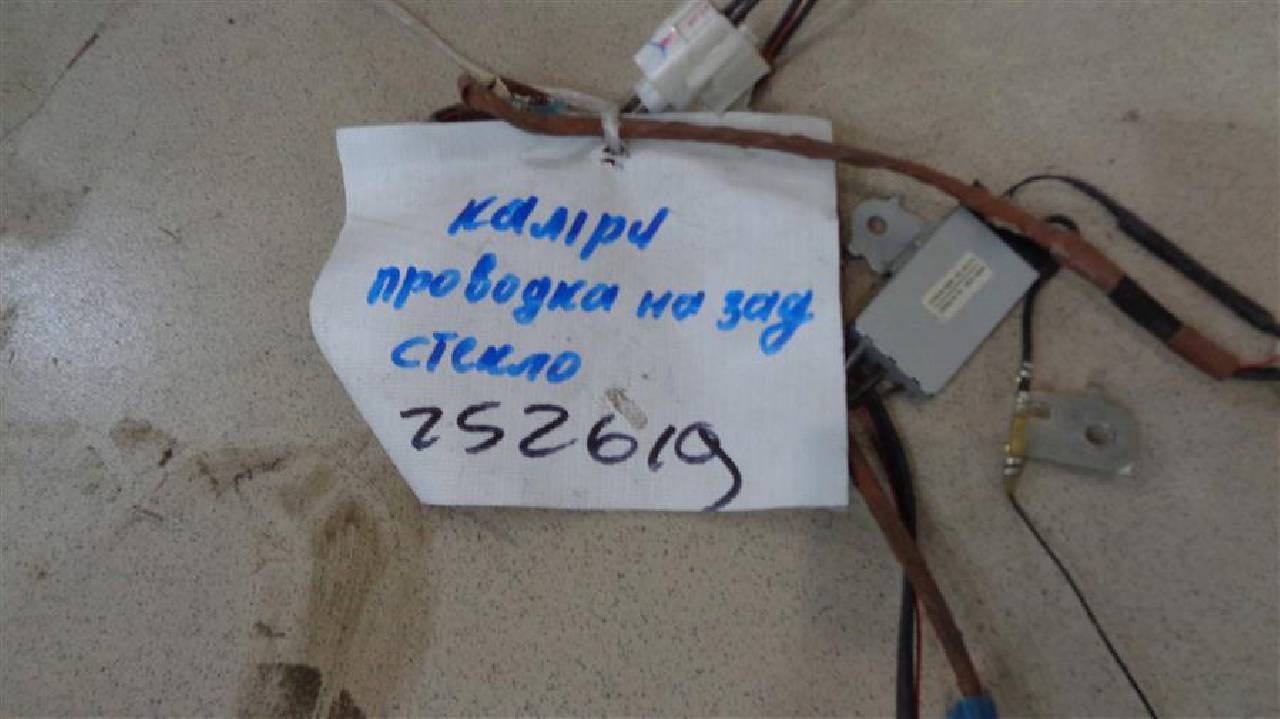 калiри
проводка на зад
стекло
252619